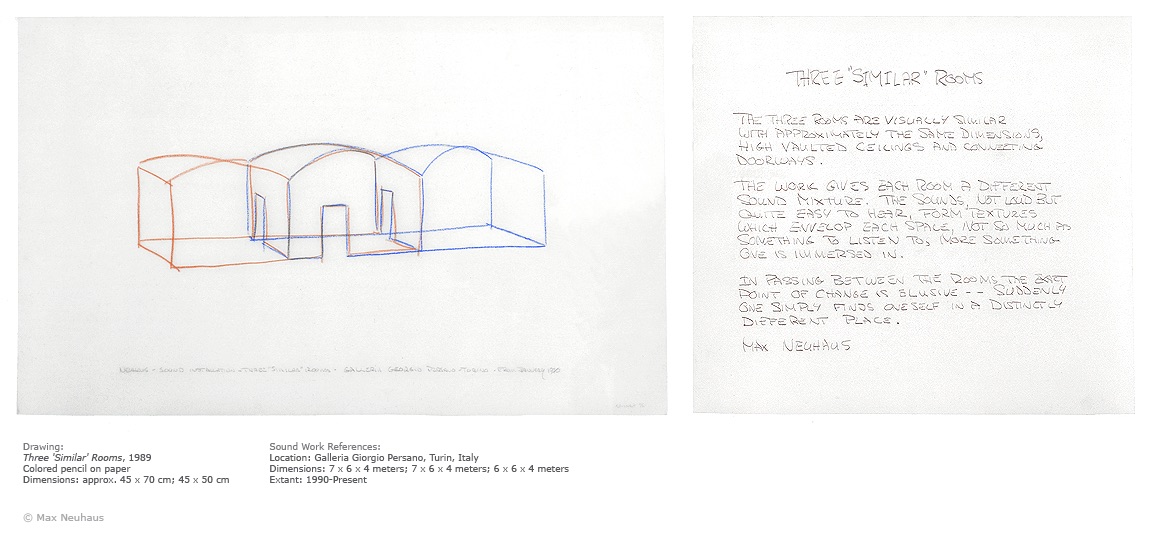 THREE "SIMILAR" ROOMS
THE THREE ROOMS ARE VISUALLY SIMILAR
WITH APPROXIMATELY THE SAME DIMENSIONS,
HIGH VAULTED CEILINGS AND CONNECTING
DOORWAYS.
THE WORK GIVES EACH ROOM A DIFFERENT
SOUND MIXTURE. THE SOUNDS, NOT LOUD BUT
QUITE EASY TO HEAR, FORM TEXTURES
WHICH ENVELOP EACH SPACE, NOT SO MUCH AS
SOMETHING TO LISTEN TO, MORE SOMETHING
ONE IS IMMERSED IN.
IN PASSING BETWEEN THE ROOMS THE EXACT
POINT OF CHANGE IS ELUSIVE -- SUDDENLY
ONE SIMPLY FINDS ONESELF IN A DISTINCTLY
DIFFERENT PLACE.
MAX NEUHAUS
NEUHAUS - SOUND INSTALLATION - THREE "SIMILAR" ROOMS - GALLERIA GIORGIO PERSANO - TORINO - FROM JANUARY 1990
Drawing:
Three 'Similar' Rooms, 1989
Colored pencil on paper
Dimensions: approx. 45 x 70 cm; 45 x 50 cm
Sound Work References:
Location: Galleria Giorgio Persano, Turin, Italy
Dimensions: 7 x 6 x 4 meters; 7 x 6 x 4 meters; 6 x 6 x 4 meters
Extant: 1990-Present
© Max Neuhaus